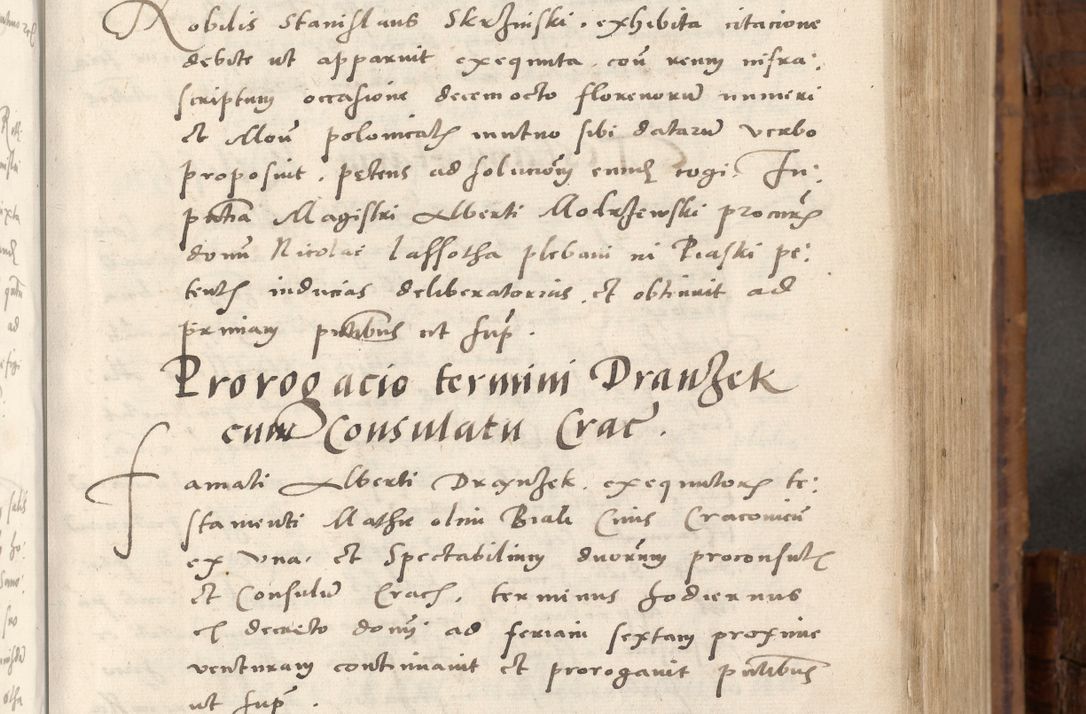 Nobilis Stanislaus Skrzinski. exhibita citacione
debite ut apparuit exequuta. coñ reum infra:
scriptum occasione decem octo florenorũ numeri
et Moñ polonicalẽ mutuo sibi datarũ verbo
proposuit. petens ad solucioñ eunđ cogi. In:
pñtia Magistri Alberti Modrzewski procurẽ
domini Nicolai Lassotha plebani in Piaski pe:
tentẽ inducias deliberatorias. et obtinuit ad
primam pñtibus ut sup̃.
Prorogacio termini Dranzek
cum Consulatu Crac̃.
Famati Alberti Dranzek. exequutorẽ te:
stamenti Mathie olim Biali Civis Cracovieñ
ex una. et Spectabilium duorum proconsulẽ
et Consulũ Cracẽ. terminus hodiernus
ex decreto domĩ ad feriam sextam proxime
venturam continuavit et prorogavit pñtibus
ut sup̃.